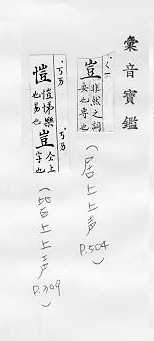 彙音寶鑑
豈
非然之詞
安也專也
(居上上声
P.504)
ㄞˋ
愷
愷悌樂
也易也
豈
仝上
字也
(皆上上声
P.309)